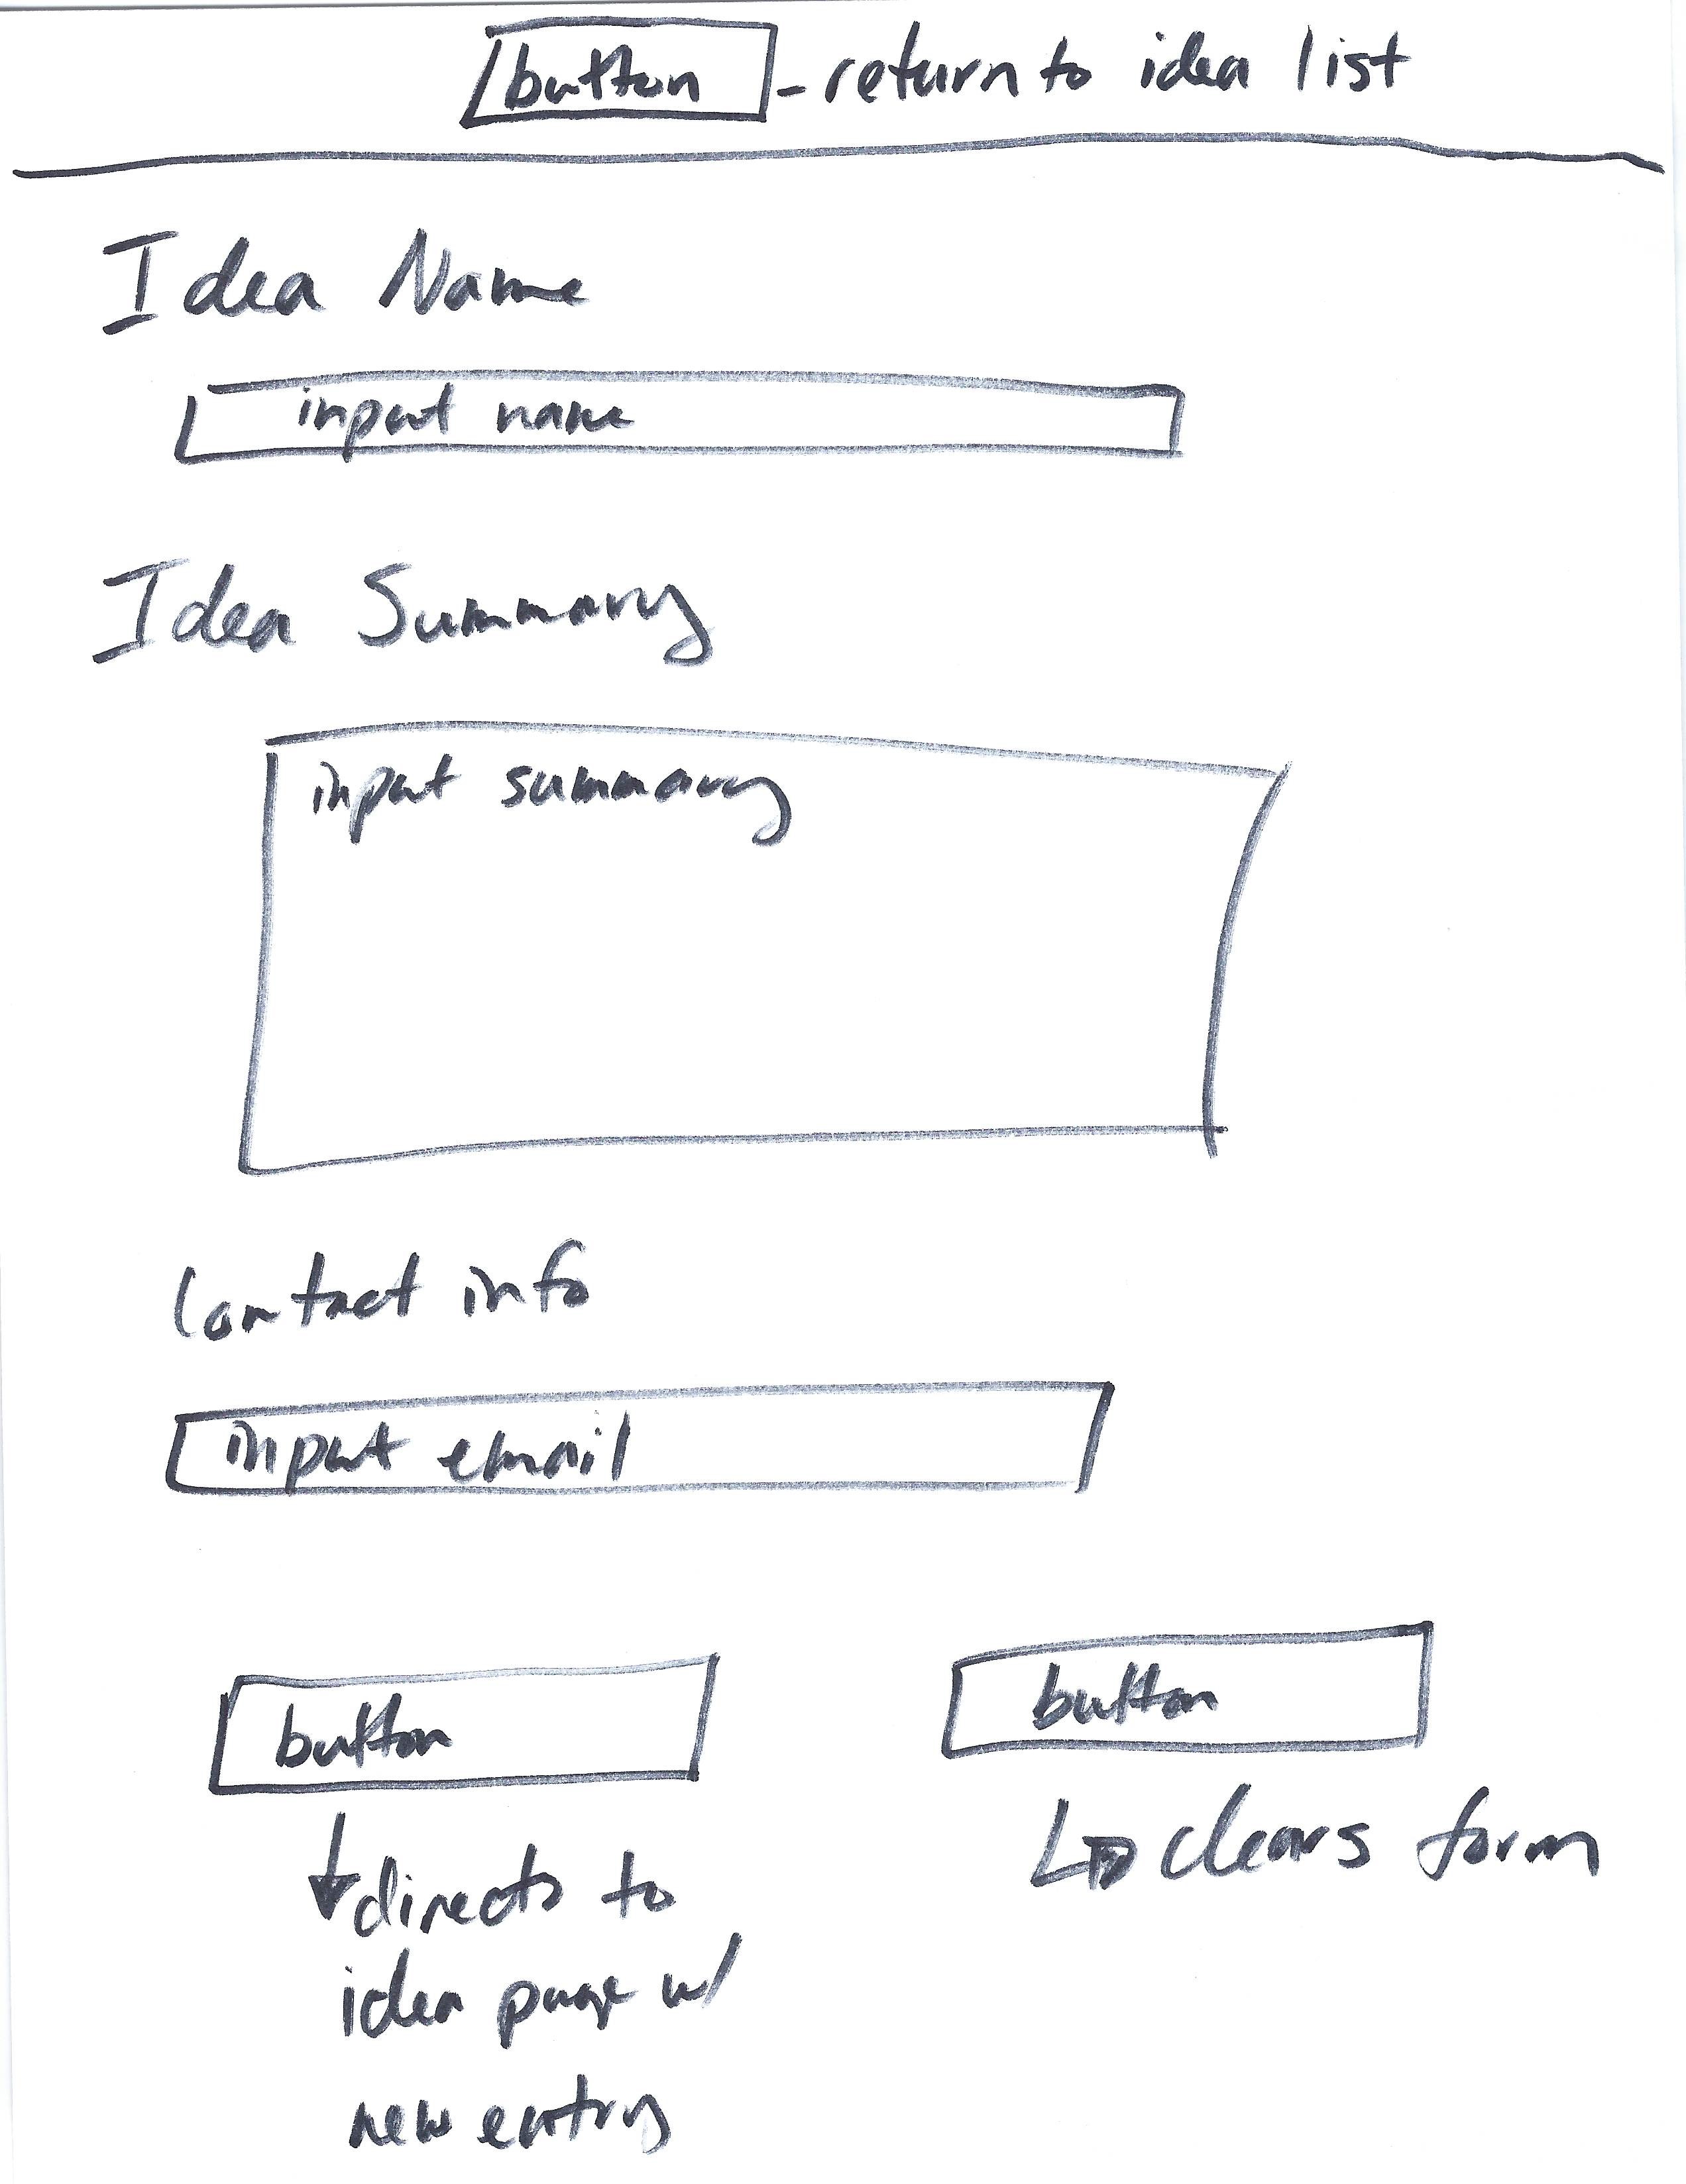 button - return to idea list
Idea Name
input name
Idea Summary
input summary
Contact info
input email
button
button
directs to
idea page w/
new entry
clears form